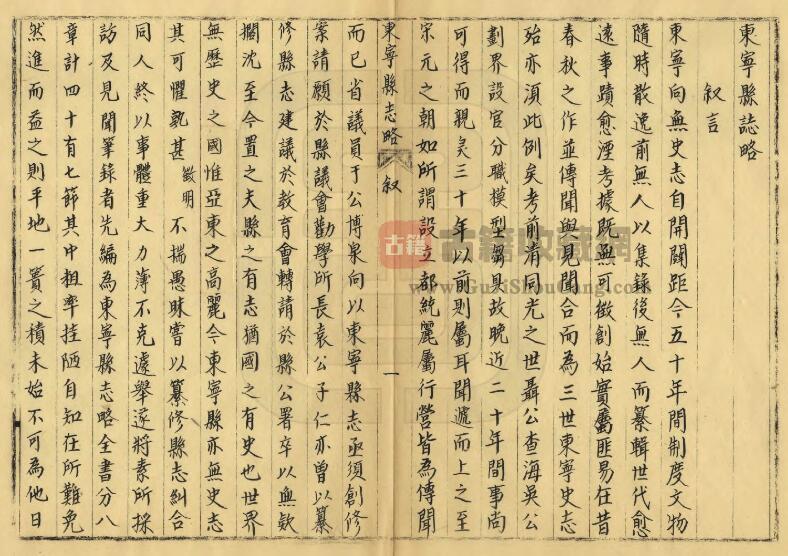 東寧縣誌略
叙言
東寧向無史志自開闢距今五十年間制度文物
隨時散逸前無人以集錄後無人而纂輯世代愈
遠事蹟愈湮考據既無可徵創始實屬匪易在昔
春秋之作並傳聞與見聞合而為三世東寧史志
殆亦須此例矣考前清同光之世聶公查海吳公
劃界設官分職模型芻具故晚近二十年間事尚
可得而親矣三十年以前則屬耳聞遞而上之至
宋元之朝如所謂設立部統麗屬行營皆為傳聞
東寧縣志略 叙 一
而已省議員于公博泉向以東寧縣志亟須創修
案請願於縣議會勸學所長袁公子仁亦曾以纂
修縣志建議於教育會轉請於縣公署卒以無欵
擱沈至今置之夫縣之有志猶國之有史也世界
無歷史之國惟亞東之高麗今東寧縣亦無史志
其可懼孰甚 徵明 不揣愚昧嘗以纂修縣志糾合
同人終以事體重大力薄不克遽舉遂將素所採
訪及見聞筆錄者先編為東寧縣志略全書分八
章計四十有七節其中粗率挂陋自知在所難免
然進而益之則平地一簣之積未始不可為他日
古籍 古籍收藏网
www.GuJiShouCang.com